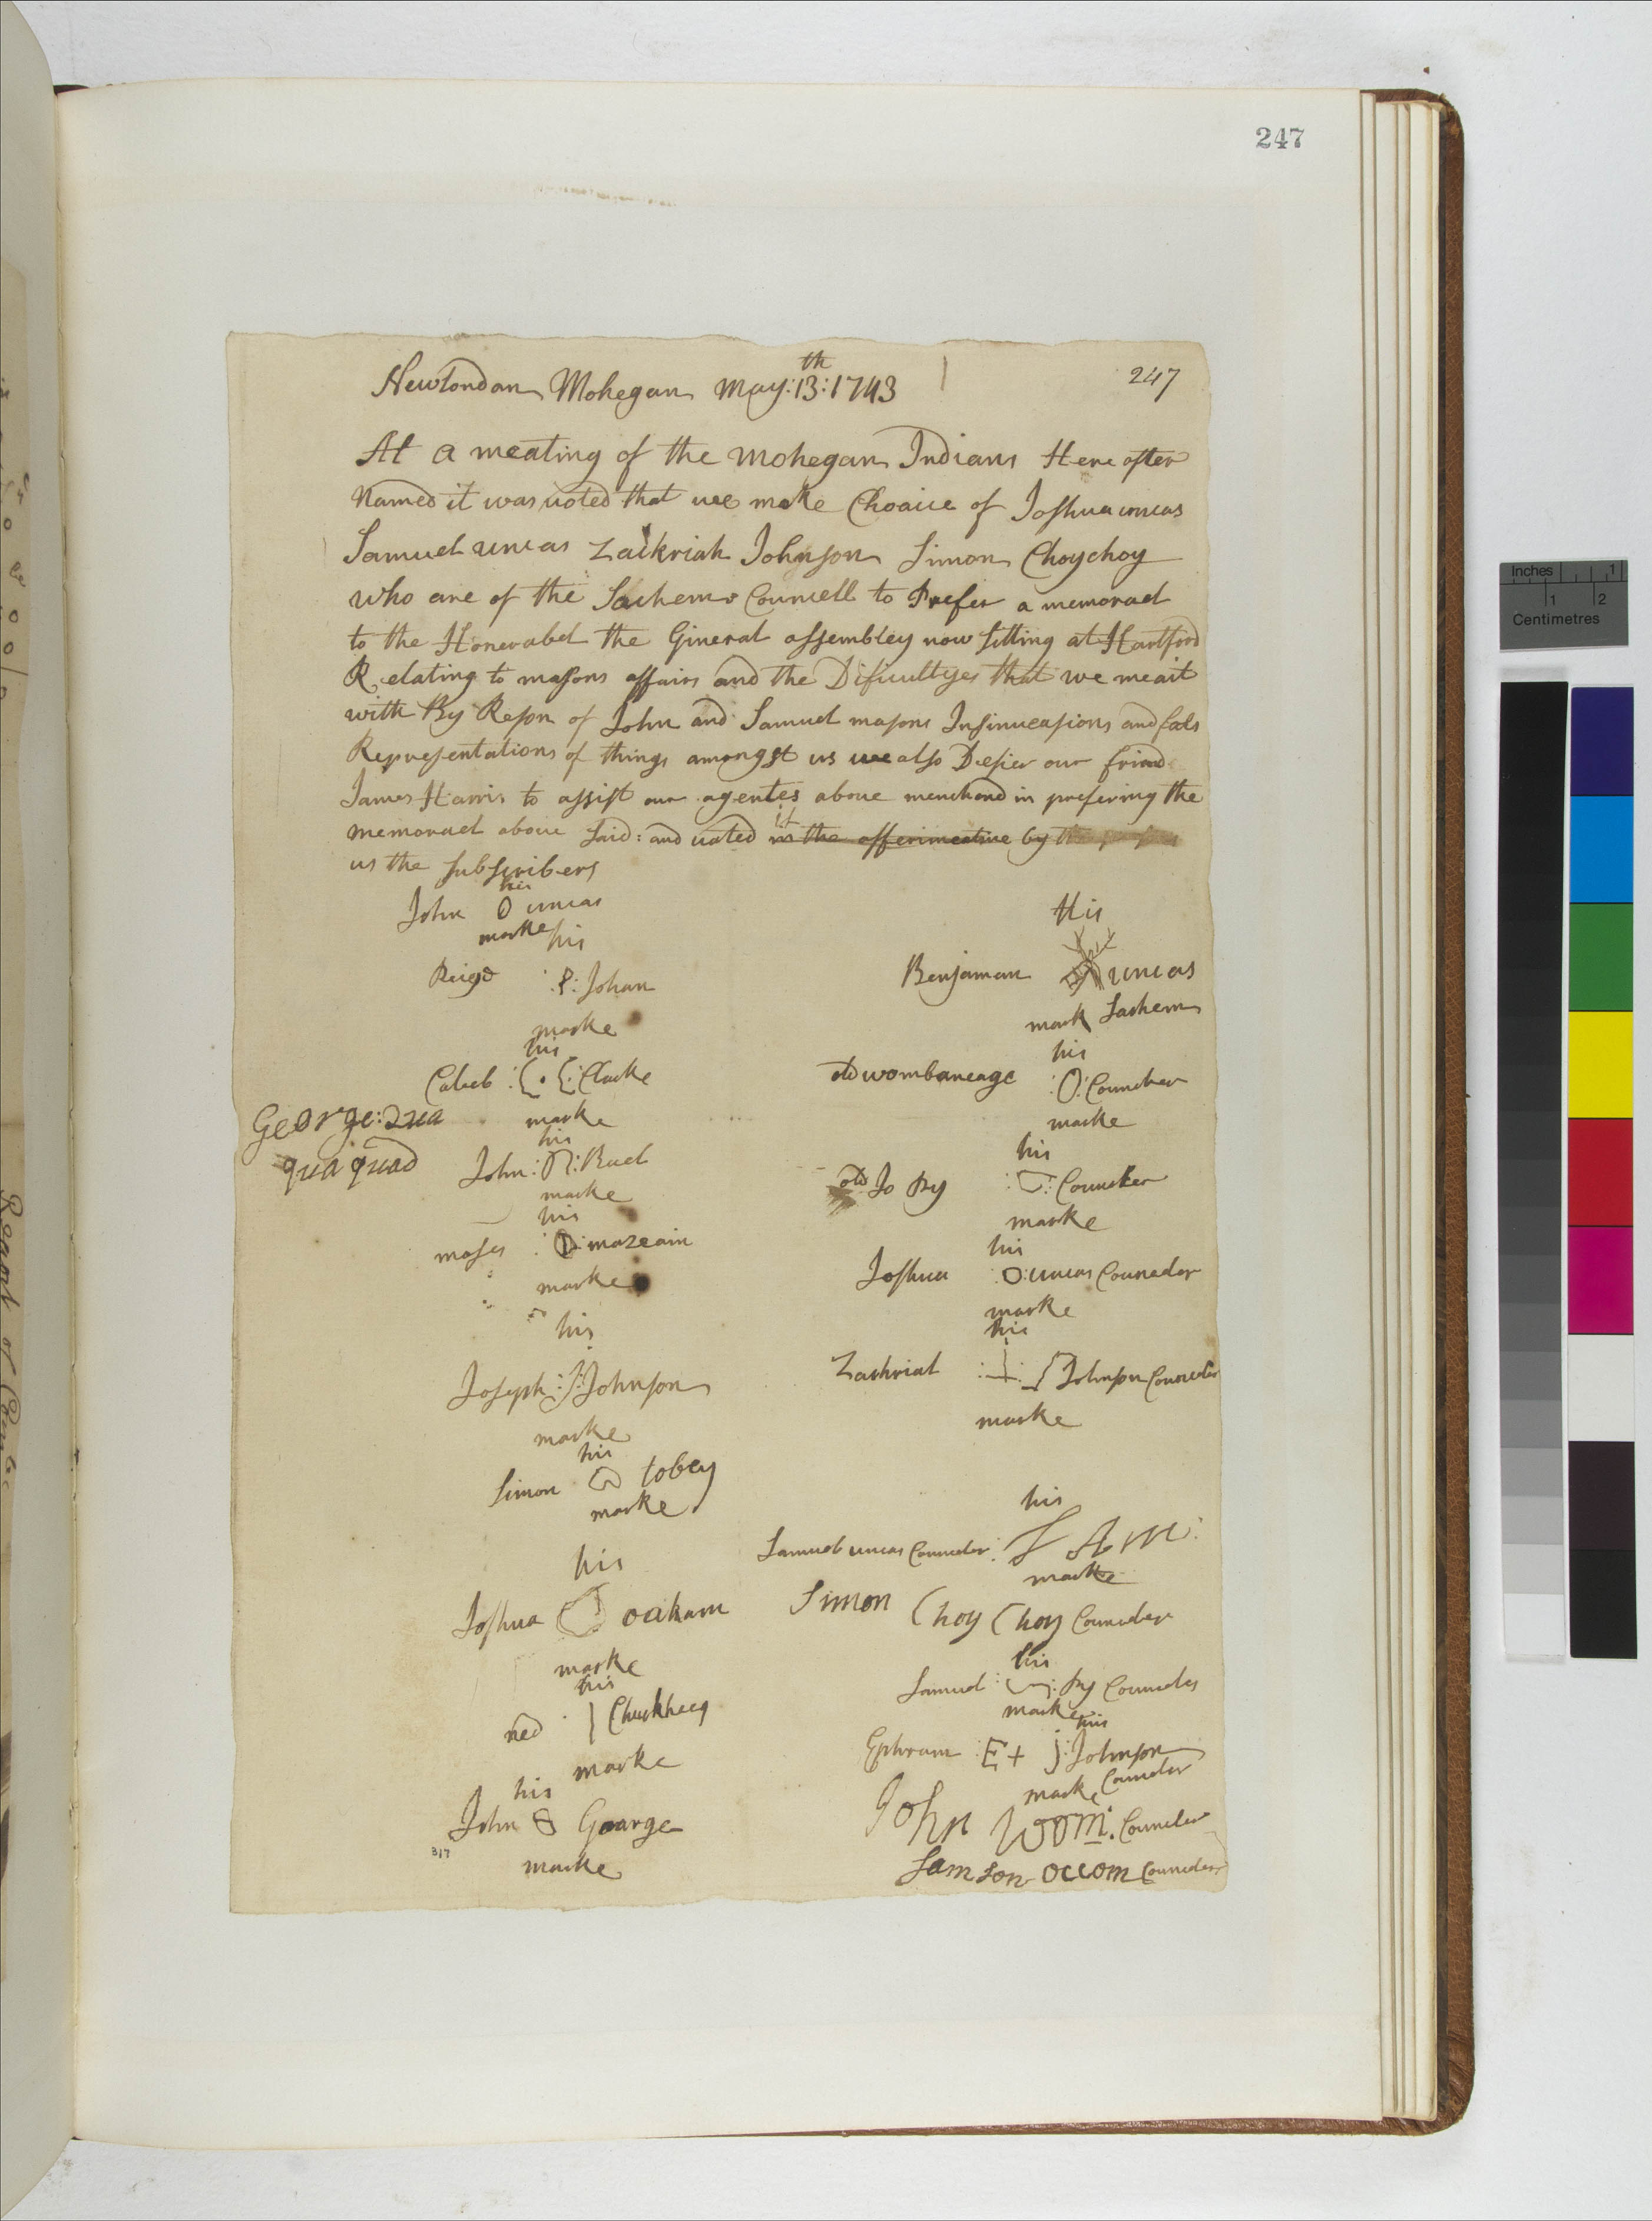 247
Newlondan Mohegan May:13:th 1743
247
At a meating of the Mohegan Indians Here after
Named it was voted that wee make Choaice of Joshua uncas
Samuel uncas Zackriah Johnson Simon Choychoy
who are of the Sachems Councell to Prefer a memorael
to the Honerabel the Gineral assembley now sitting at Hartford
Relating to masons affairs and the Dificultyes that we meait
with By Reson of John and Samuel masons Insinueasions and fals
Representations of things amongst us we also Desier our friend
James Harris to assist our agentes above menchond in prefering the
memorael above said: and voted it in the afferimeative by the
us the subscribers
his
John O uncas
marke
his
Johan
marke
his
Caleb Clarke
marke
George: qua
qua quad
his
John Buel
marke
his
moses mazeain
marke
his
Joseph J Johnson
marke
his
Simon tobey
marke
his
Joshua oakam
marke
his
ned Chuckheeg
marke
his
John Goarge
marke
317
His
Benjaman uncas
mark Sachem
his
old wombaneage Counsler
marke
his
old Jo Py Counsler
marke
his
Joshua O uncas Counceler
marke
his
Zachriah Johnson Counceler
marke
his
Samuel uncas Counceler: S A m:
marke
Simon Choy Choy Counceler
his
Samuel Py Counceler
marke
his
Ephraim E + J Johnson
marke Counceler
John Wom: Counceler
Samson occom Counceler